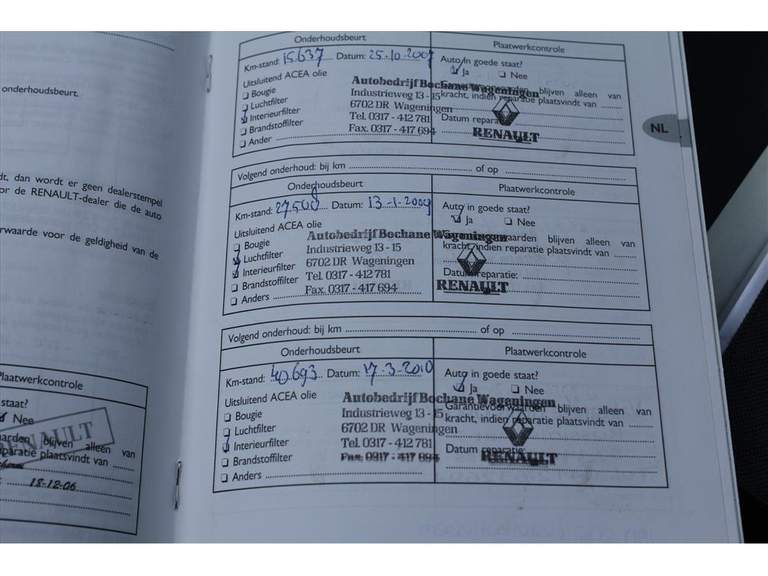 onderhoudsbeurt.
dt, dan wordt er geen dealerstempel
or de RENAULT-dealer die de auto
rwaarde voor de geldigheid van de
Plaatwerkcontrole
staat?
Nee
arden blijven alleen van
paratie plaatsvindt van
RENAULT
18-12-06
Onderhoudsbeurt Plaatwerkcontrole
Km-stand: 15637 Datum: 25-10-2007 Auto in goede staat?
Uitsluitend ACEA olie Ja Nee
Bougie Autobedrijf Bochane Wageningen blijven alleen van
Luchtfilter Industrieweg 13 - 15 kracht, indien reparatie plaatsvindt van
Interieurfilter 6702 DR Wageningen
Brandstoffilter Tel. 0317 - 412 781 Datum reparatie:
Ander Fax. 0317 - 417 694 RENAULT
NL
Volgend onderhoud: bij km of op
Onderhoudsbeurt Plaatwerkcontrole
Km-stand: 27500 Datum: 13-1-2009 Auto in goede staat?
Uitsluitend ACEA olie Ja Nee
Bougie Autobedrijf Bochane Wageningen blijven alleen van
Luchtfilter Industrieweg 13 - 15 kracht, indien reparatie plaatsvindt van
Interieurfilter 6702 DR Wageningen
Brandstoffilter Tel. 0317 - 412 781 Datum reparatie:
Anders Fax. 0317 - 417 694 RENAULT
Volgend onderhoud: bij km of op
Onderhoudsbeurt Plaatwerkcontrole
Km-stand: 40693 Datum: 17-3-2010 Auto in goede staat?
Uitsluitend ACEA olie Ja Nee
Bougie Autobedrijf Bochane Wageningen
Garantievoorwaarden blijven alleen van
Luchtfilter Industrieweg 13 - 15 kracht, indien reparatie plaatsvindt van
Interieurfilter 6702 DR Wageningen
Brandstoffilter Tel. 0317 - 412 781 Datum reparatie:
Anders Fax. 0317 - 417 694 RENAULT